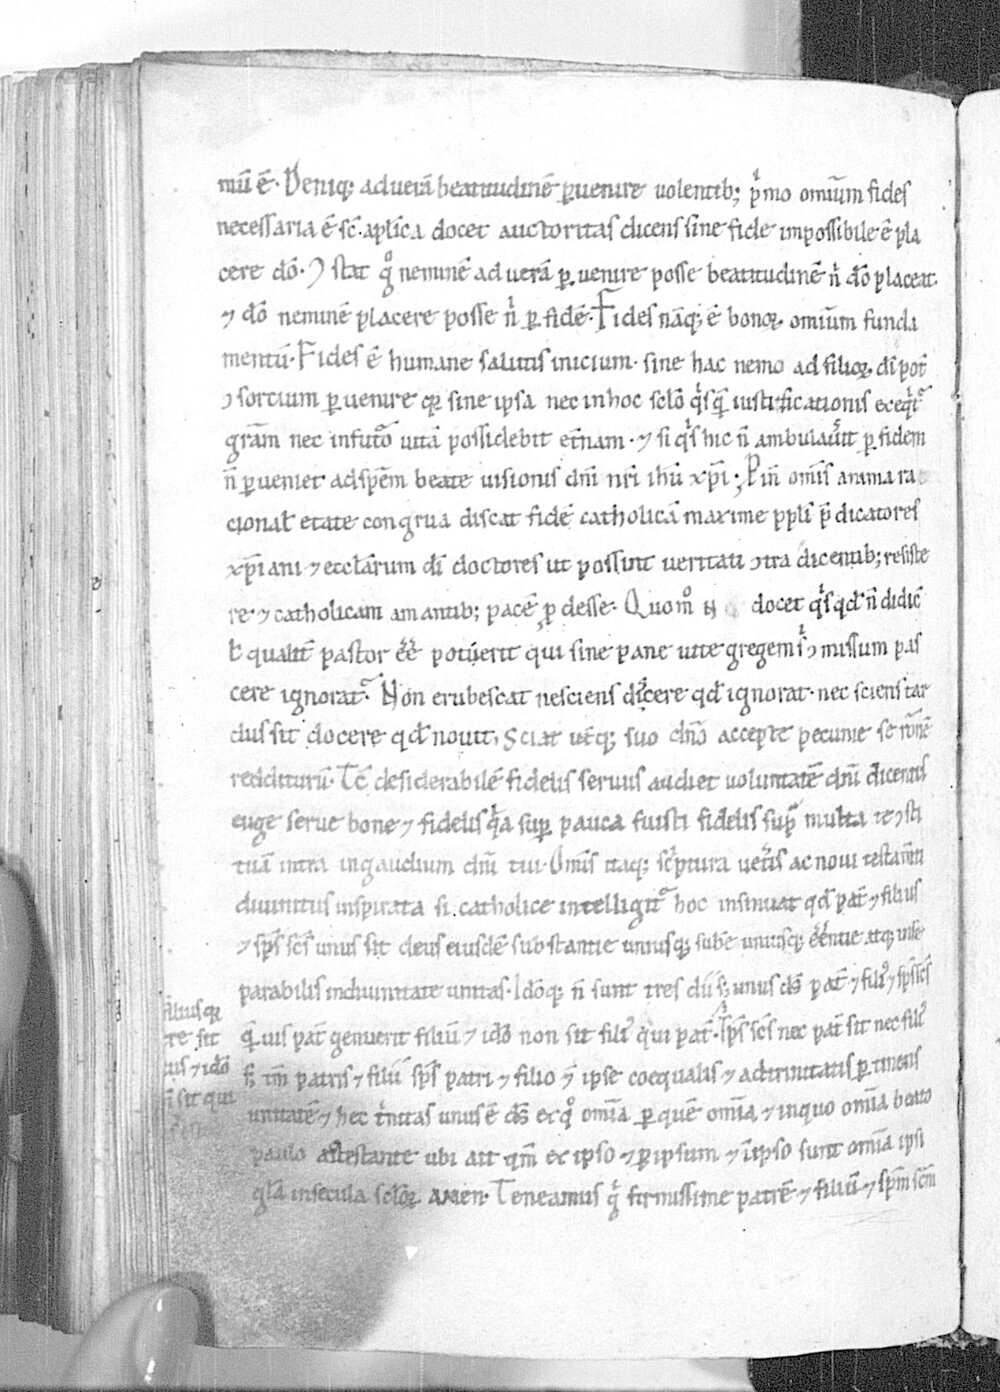 mū ē. Deniq; ad uerā beatitudinē ꝑuenire uolentib; pͥmo omiūm fides
necessaria ē sč. aplīca docet auctoritas dicens sine fide impossibile ē pla
cere dō. Ↄstat gͦ neminē ad uerā ꝑuenire posse beatitudinē nͥ dō placeat.
⁊ dō neminē placere posse nͥ ꝑ fidē. Fides nāq; ē bonoꝝ omiūm funda
mentū. Fides ē humane salutis inicium. sine hac nemo ad filioꝝ dī pot̄
ↄsortium ꝑuenire qꝛ sine ipsa nec in hoc sclō qͥsqͣ iustificationis
grām nec in futͦ uitā possidebit et̄nam. ⁊ si qͥs hic n̄ ambulauͥit ꝑ fidem
n̄ ꝑueniet ad spēm beate uisionis dnī nrī ihū xp̄i. omīs anima ra
cional̄ etate congrua discat fidē catholicā maxime ppli p̄dicatores
xp̄iani ⁊ eccl̄arum dī doctores ut possint ueritati ↄtradicentib; resiste
re ⁊ catholicam amantib; pacē ꝓdesse. Quomͦ docet qͥs qd̄ n̄ didic̄
ł qualit̄ pastor eē̄ potuerit qui sine pane uite gregem sͥ ↄmissum pas
cere ignorat. Non erubescat nesciens dicere qd̄ ignorat. nec sciens tar
dus sit docere qd̄ nouit. Sciat ut̄q; suo dnō accepte pecunie se rōnē
redditurū. Tč desiderabilē fidelis seruus audiet uoluntatē dnī dicentis
euge serue bone ⁊ fidelis qͥa suꝑ pauca fuisti fidelis supͣ multa te ↄsti
tuā intra in gaudium dnī tui. Omīs itaq; scͥptura uet̄is ac noui testam̄ti
diuinitus inspirata si catholice intelligit̄ hoc insinuat qd̄ pat̄ ⁊ filius
⁊ sp̄s sc̄s unus sit deus eiusdē substantie uniusq; unusq; atq; inse
parabilis in diuinitate unitas. Idōq; n̄ sunt tres dii s; unus ds̄ pat̄ ⁊ fili᷒ ⁊ sp̄s sc̄s
qͣuis pat̄ genuerit filiū ⁊ idō non sit fili᷒ qui pat̄. sp̄s sc̄s nec pat̄ sit nec fili᷒
s; tm̄ patris ⁊ filii sp̄s patri ⁊ filio ⁊ ipse coequalis ⁊ ad trinitatis ꝑtinens
unitatē ⁊ hec tͥnitas unus ē ds̄ ex qͦ omīa ꝑ quē omīa ⁊ in quo omīa beato
paulo attestante ubi ait qm̄ ex ipso ⁊ ꝑ ipsum ⁊ ī ipso sunt omīa ipsi
glā in secula scloꝝ amen. Teneamus gͥ firmissime patrē ⁊ filiū ⁊ sp̄m sc̄m
filiusqꝛ
te sit
⁊ idō
sit qui